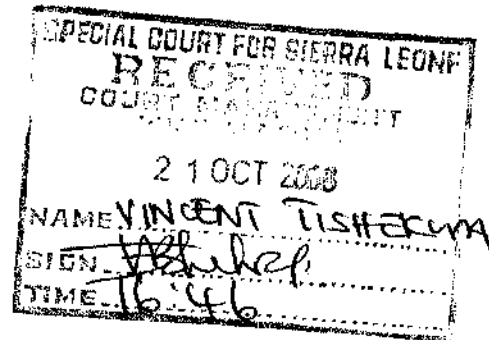 SPECIAL COURT FOR SIERRA LEONE
RECEIVED
COURT MANAGEMENT
21 OCT 2008
NAME VINCENT TISHEKWA
SIGN
TIME 16:46